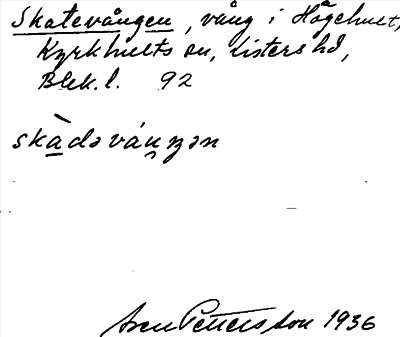 Skatevången, vång i Högehult,
Kyrkhults sn, Listers hd,
Blek. l. 92
skàdəváuŋən
Pettersson 1936